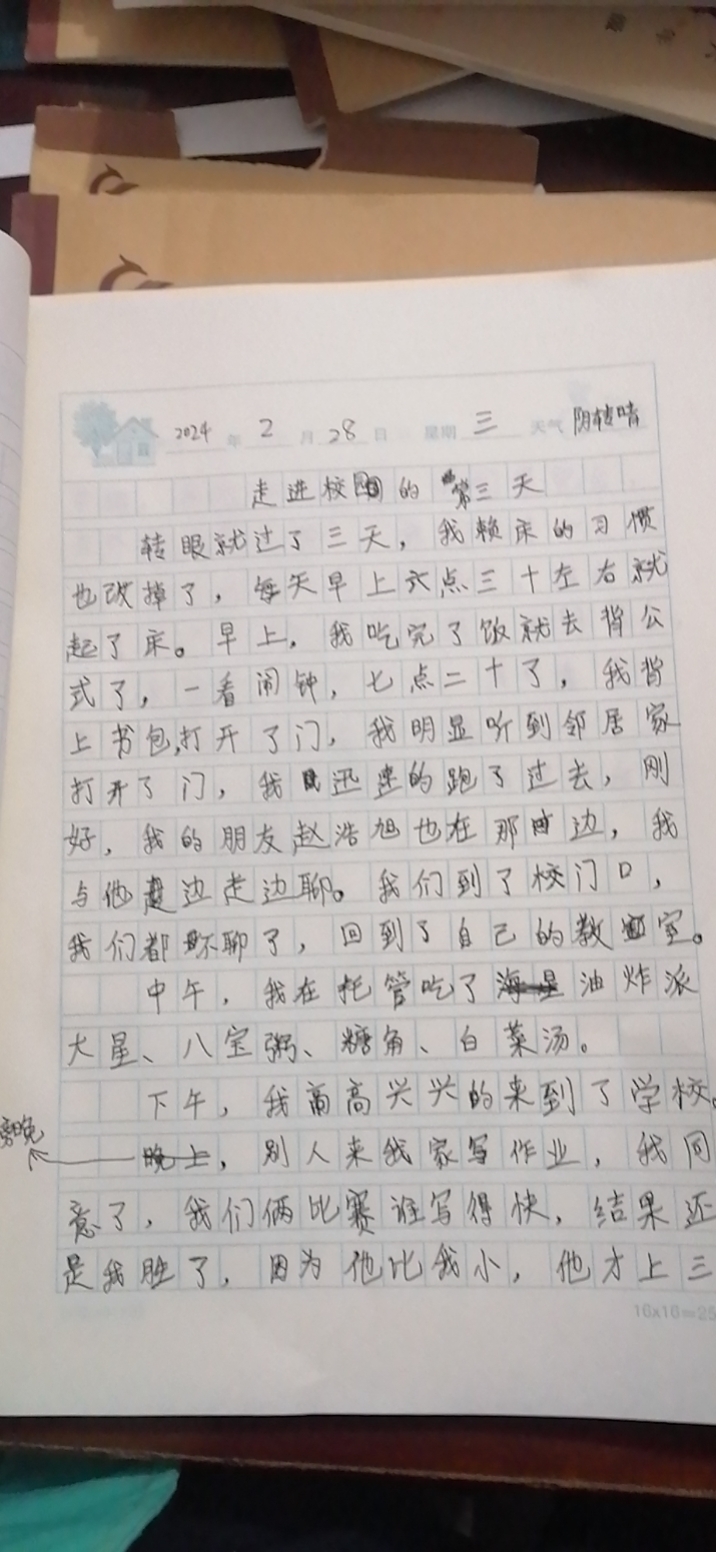 2024年2月28日 星期三 天气阴转晴
走进校园的第三天
转眼就过了三天，我赖床的习惯
也改掉了，每天早上六点三十左右就
起了床。早上，我吃完了饭就去背公
式了，一看闹钟，七点二十了，我背
上书包,打开了门，我明显听到邻居家
打开了门，我迅速的跑了过去，刚
好，我的朋友赵浩旭也在那边，我
与他边走边聊。我们到了校门口，
我们都不聊了，回到了自己的教室。
中午，我在托管吃了油炸派
大星、八宝粥、糖角、白菜汤。
下午，我高高兴兴的来到了学校。
傍晚，别人来我家写作业，我同
意了，我们俩比赛谁写得快，结果还
是我胜了，因为他比我小，他才上三
16x16=25